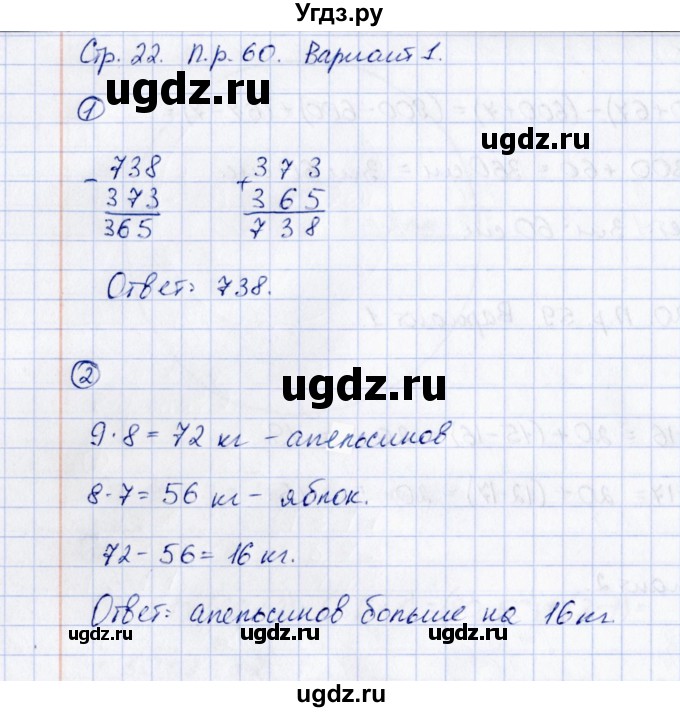 Угдз.ру
Стр. 22. П.р. 60. Вариант 1.
ugdz.ru ugdz.ru
1
- 738 + 373
373 365
365 738
Ответ: 738.
2
ugdz.ru
9·8=72 кг - апельсинов
8·7=56 кг - яблок.
72-56=16 кг.
Ответ: апельсинов больше на 16 кг.
ugdz.ru ugdz.ru ugdz.ru
ugdz.ru